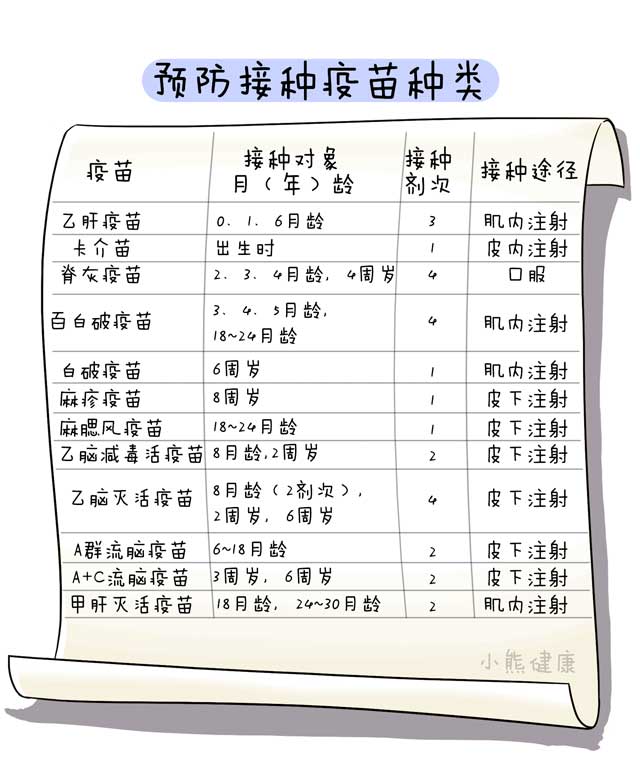 预防接种疫苗种类
疫苗 接种对象 月（年）龄 接种剂次 接种途径
乙肝疫苗 0、1、6月龄 3 肌内注射
卡介苗 出生时 1 皮内注射
脊灰疫苗 2、3、4月龄，4周岁 4 口服
百白破疫苗 3、4、5月龄，18~24月龄 4 肌内注射
白破疫苗 6周岁 1 肌内注射
麻疹疫苗 8周岁 1 皮下注射
麻腮风疫苗 18~24月龄 1 皮下注射
乙脑减毒活疫苗 8月龄,2周岁 2 皮下注射
乙脑灭活疫苗 8月龄（2剂次），2周岁，6周岁 4 皮下注射
A群流脑疫苗 6~18月龄 2 皮下注射
A+C流脑疫苗 3周岁，6周岁 2 皮下注射
甲肝灭活疫苗 18月龄，24~30月龄 2 肌内注射
小熊健康